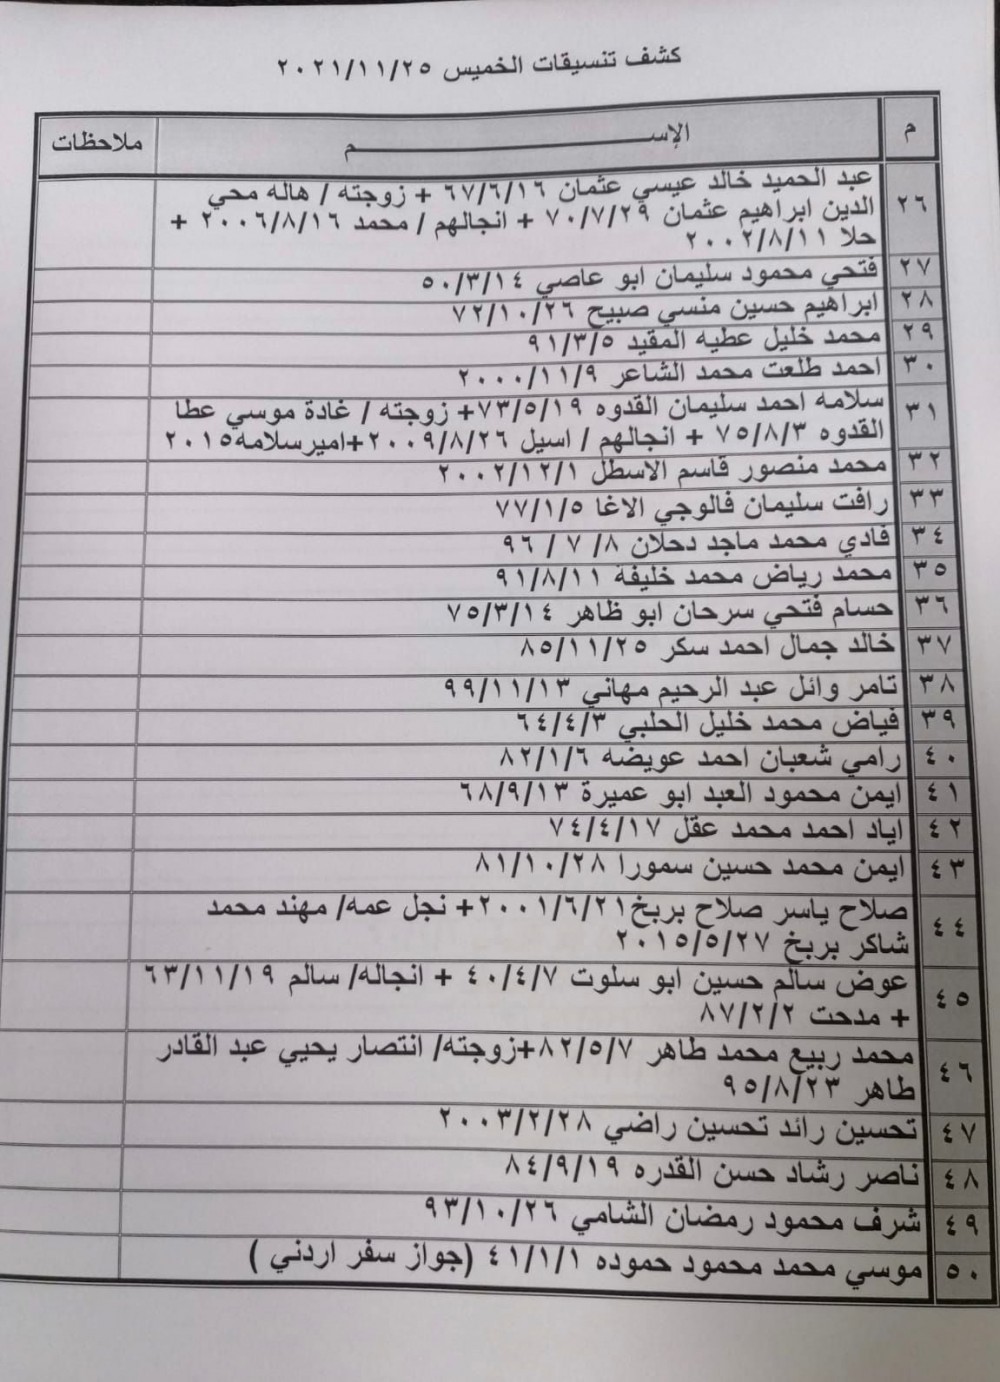 كشف تنسيقات الخميس ٢٠٢١/١١/٢٥
م الإســـــــم ملاحظات
٢٦ عبد الحميد خالد عيسي عثمان ٦٧/٦/١٦ + زوجته / هاله محي
الدين ابراهيم عثمان ٧٠/٧/٢٩ + انجالهم / محمد ٢٠٠٦/٨/١٦ +
حلا ٢٠٠٢/٨/١١
٢٧ فتحي محمود سليمان ابو عاصي ٥٠/٣/١٤
٢٨ ابراهيم حسين منسي صبيح ٧٢/١٠/٢٦
٢٩ محمد خليل عطيه المقيد ٩١/٣/٥
٣٠ احمد طلعت محمد الشاعر ٢٠٠٠/١١/٩
٣١ سلامه احمد سليمان القدوه ٧٣/٥/١٩+ زوجته / غادة موسي عطا
القدوه ٧٥/٨/٣ + انجالهم / اسيل ٢٠٠٩/٨/٢٦+اميرسلامه٢٠١٥
٣٢ محمد منصور قاسم الاسطل ٢٠٠٢/١٢/١
٣٣ رافت سليمان فالوجي الاغا ٧٧/١/٥
٣٤ فادي محمد ماجد دحلان ٨/ ٧ / ٩٦
٣٥ محمد رياض محمد خليفة ٩١/٨/١١
٣٦ حسام فتحي سرحان ابو ظاهر ٧٥/٣/١٤
٣٧ خالد جمال احمد سكر ٨٥/١١/٢٥
٣٨ تامر وائل عبد الرحيم مهاني ٩٩/١١/١٣
٣٩ فياض محمد خليل الحلبي ٦٤/٤/٣
٤٠ رامي شعبان احمد عويضه ٨٢/١/٦
٤١ ايمن محمود العبد ابو عميرة ٦٨/٩/١٣
٤٢ اياد احمد محمد عقل ٧٤/٤/١٧
٤٣ ايمن محمد حسين سمورا ٨١/١٠/٢٨
٤٤ صلاح ياسر صلاح بربخ٢٠٠١/٦/٢١+ نجل عمه/ مهند محمد
شاكر بربخ ٢٠١٥/٥/٢٧
٤٥ عوض سالم حسين ابو سلوت ٤٠/٤/٧ + انجاله/ سالم ٦٣/١١/١٩
+ مدحت ٨٧/٢/٢
٤٦ محمد ربيع محمد طاهر ٨٢/٥/٧+زوجته/ انتصار يحيي عبد القادر
طاهر ٩٥/٨/٢٣
٤٧ تحسين رائد تحسين راضي ٢٠٠٣/٢/٢٨
٤٨ ناصر رشاد حسن القدره ٨٤/٩/١٩
٤٩ شرف محمود رمضان الشامي ٩٣/١٠/٢٦
٥٠ موسي محمد محمود حموده ٤١/١/١ (جواز سفر اردني )